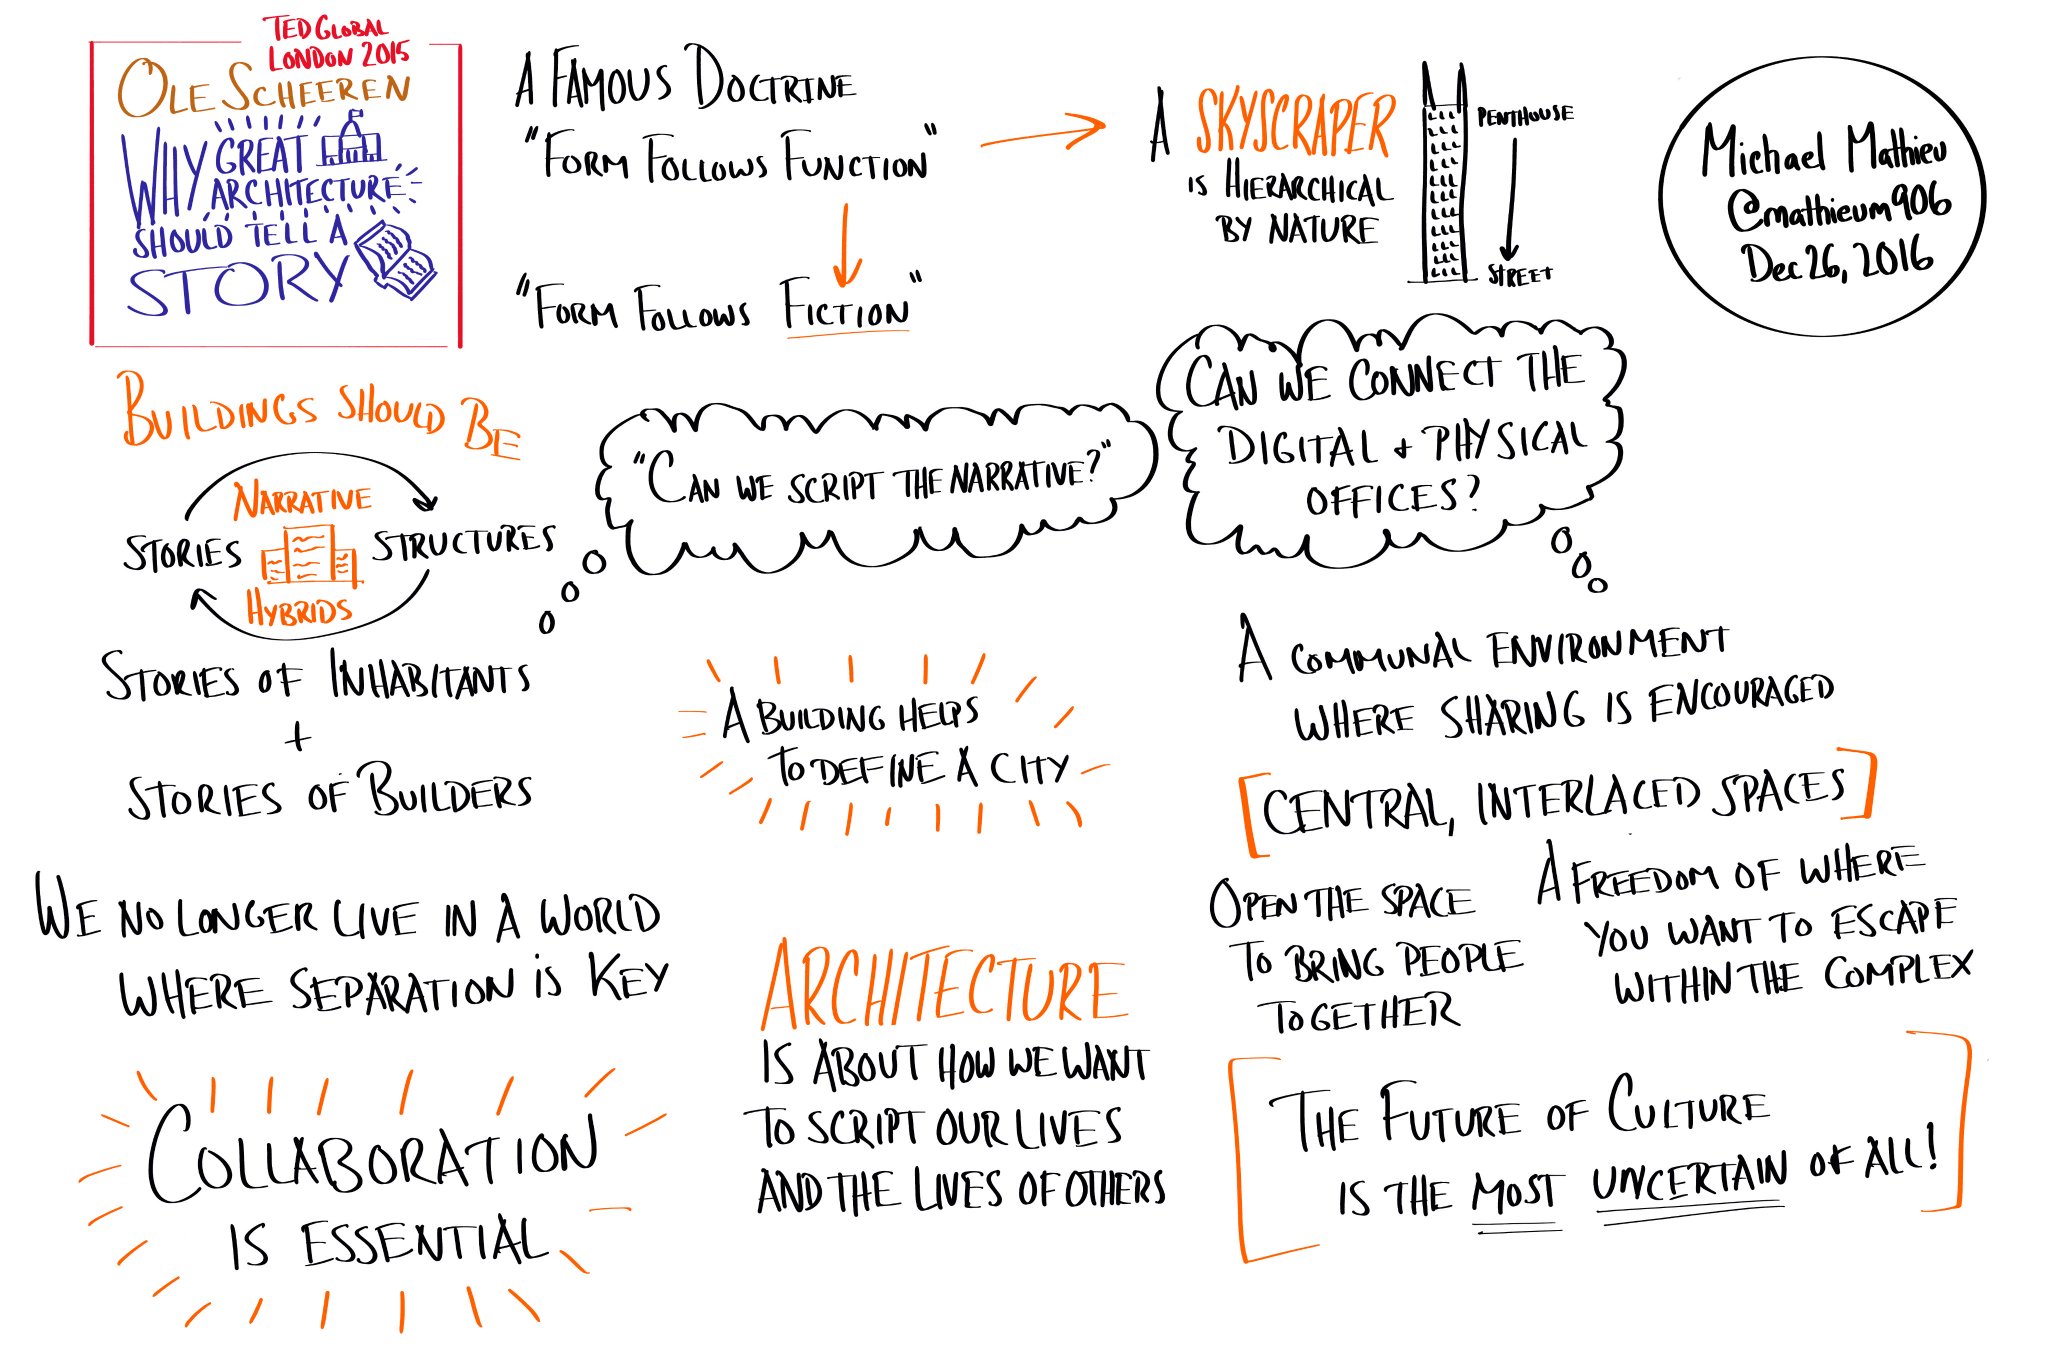 TED GLOBAL
LONDON 2015
OLE SCHEEREN
WHY GREAT
ARCHITECTURE
SHOULD TELL A
STORY
A FAMOUS DOCTRINE
"FORM FOLLOWS FUNCTION"
"FORM FOLLOWS FICTION"
A SKYSCRAPER
IS HIERARCHICAL
BY NATURE
PENTHOUSE
STREET
Michael Mathieu
@mathieum906
Dec 26, 2016
BUILDINGS SHOULD BE
NARRATIVE
STORIES
STRUCTURES
HYBRIDS
STORIES OF INHABITANTS
+
STORIES OF BUILDERS
"CAN WE SCRIPT THE NARRATIVE?"
CAN WE CONNECT THE
DIGITAL + PHYSICAL
OFFICES?
A BUILDING HELPS
TO DEFINE A CITY
A COMMUNAL ENVIRONMENT
WHERE SHARING IS ENCOURAGED
[CENTRAL, INTERLACED SPACES]
OPEN THE SPACE
TO BRING PEOPLE
TOGETHER
A FREEDOM OF WHERE
YOU WANT TO ESCAPE
WITHIN THE COMPLEX
WE NO LONGER LIVE IN A WORLD
WHERE SEPARATION IS KEY
COLLABORATION
IS ESSENTIAL
ARCHITECTURE
IS ABOUT HOW WE WANT
TO SCRIPT OUR LIVES
AND THE LIVES OF OTHERS
[THE FUTURE OF CULTURE
IS THE MOST UNCERTAIN OF ALL!]